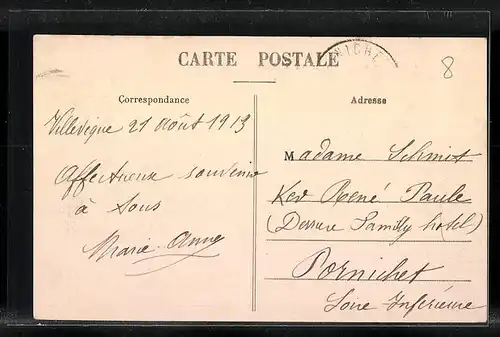 CARTE POSTALE
NICHE
8
Correspondance
Adresse
21 Août 1913
Affectueux souvenir
à tous
Marie Anne
Madame Schmit
Ker René Paule
(Derrière Family hotel)
Pornichet
Loire Inférieure